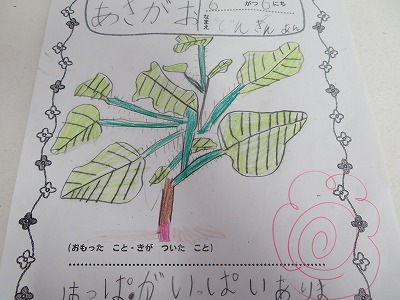 あさがお
6 がつ 6にち
なまえ でんきん
(おもった こと・きが ついた こと)
はっぱがいっぱいありま